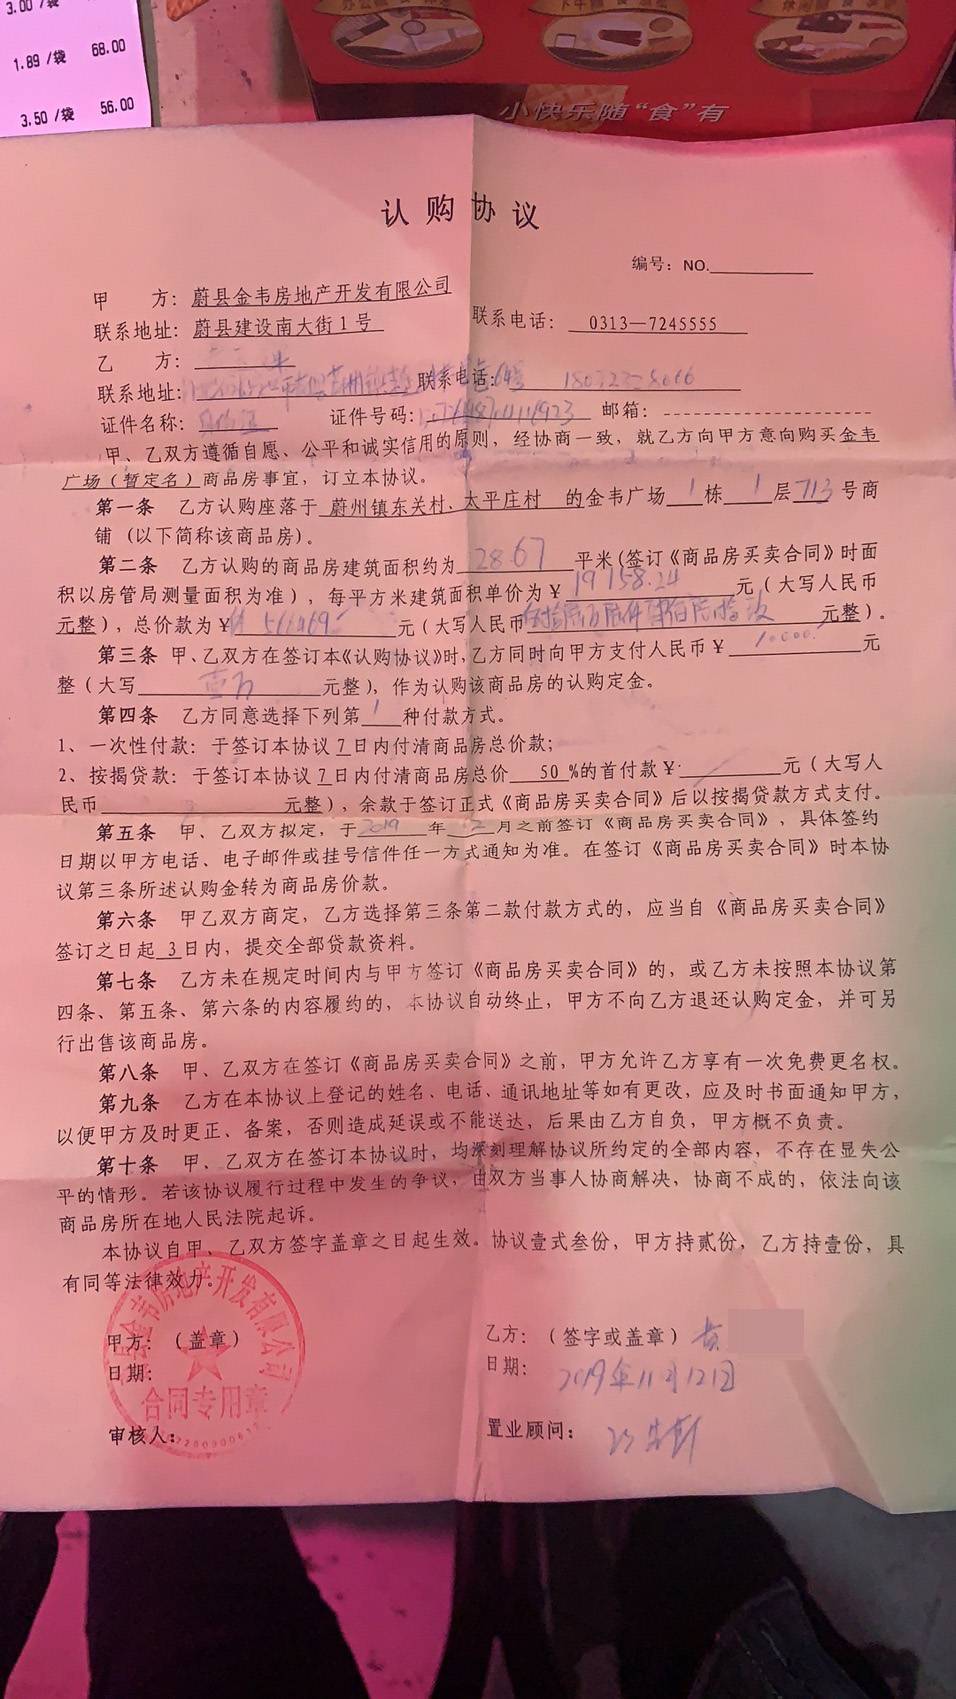 3.00 /袋
1.89 /袋 68.00
3.50 /袋 56.00
小快乐随“食”有
认购协议
编号：NO.
甲 方：蔚县金韦房地产开发有限公司
联系地址：蔚县建设南大街1号 联系电话：0313—7245555
乙 方：
联系地址： 联系电话：
证件名称：身份证 证件号码： 邮箱：
甲、乙双方遵循自愿、公平和诚实信用的原则，经协商一致，就乙方向甲方意向购买金韦
广场（暂定名）商品房事宜，订立本协议。
第一条 乙方认购座落于 蔚州镇东关村、太平庄村 的金韦广场 1 栋 1 层 713 号商
铺（以下简称该商品房）。
第二条 乙方认购的商品房建筑面积约为 28.67 平米(签订《商品房买卖合同》时面
积以房管局测量面积为准），每平方米建筑面积单价为￥ 19158.24 元（大写人民币
元整），总价款为￥ 元（大写人民币 元整）。
第三条 甲、乙双方在签订本《认购协议》时，乙方同时向甲方支付人民币￥ 10000. 元
整（大写 壹万 元整），作为认购该商品房的认购定金。
第四条 乙方同意选择下列第 1 种付款方式。
1、一次性付款：于签订本协议 7 日内付清商品房总价款；
2、按揭贷款：于签订本协议 7 日内付清商品房总价 50 %的首付款￥ 元（大写人
民币 元整），余款于签订正式《商品房买卖合同》后以按揭贷款方式支付。
第五条 甲、乙双方拟定，于 2019 年 月之前签订《商品房买卖合同》，具体签约
日期以甲方电话、电子邮件或挂号信件任一方式通知为准。在签订《商品房买卖合同》时本协
议第三条所述认购金转为商品房价款。
第六条 甲乙双方商定，乙方选择第三条第二款付款方式的，应当自《商品房买卖合同》
签订之日起 3 日内，提交全部贷款资料。
第七条 乙方未在规定时间内与甲方签订《商品房买卖合同》的，或乙方未按照本协议第
四条、第五条、第六条的内容履约的，本协议自动终止，甲方不向乙方退还认购定金，并可另
行出售该商品房。
第八条 甲、乙双方在签订《商品房买卖合同》之前，甲方允许乙方享有一次免费更名权。
第九条 乙方在本协议上登记的姓名、电话、通讯地址等如有更改，应及时书面通知甲方，
以便甲方及时更正、备案，否则造成延误或不能送达，后果由乙方自负，甲方概不负责。
第十条 甲、乙双方在签订本协议时，均深刻理解协议所约定的全部内容，不存在显失公
平的情形。若该协议履行过程中发生的争议，由双方当事人协商解决，协商不成的，依法向该
商品房所在地人民法院起诉。
本协议自甲、乙双方签字盖章之日起生效。协议壹式叁份，甲方持贰份，乙方持壹份，具
有同等法律效力。
甲方：（盖章） 乙方：（签字或盖章）
日期： 日期：2019年11月12日
韦房地产开发有限公司
合同专用章
审核人： 置业顾问：